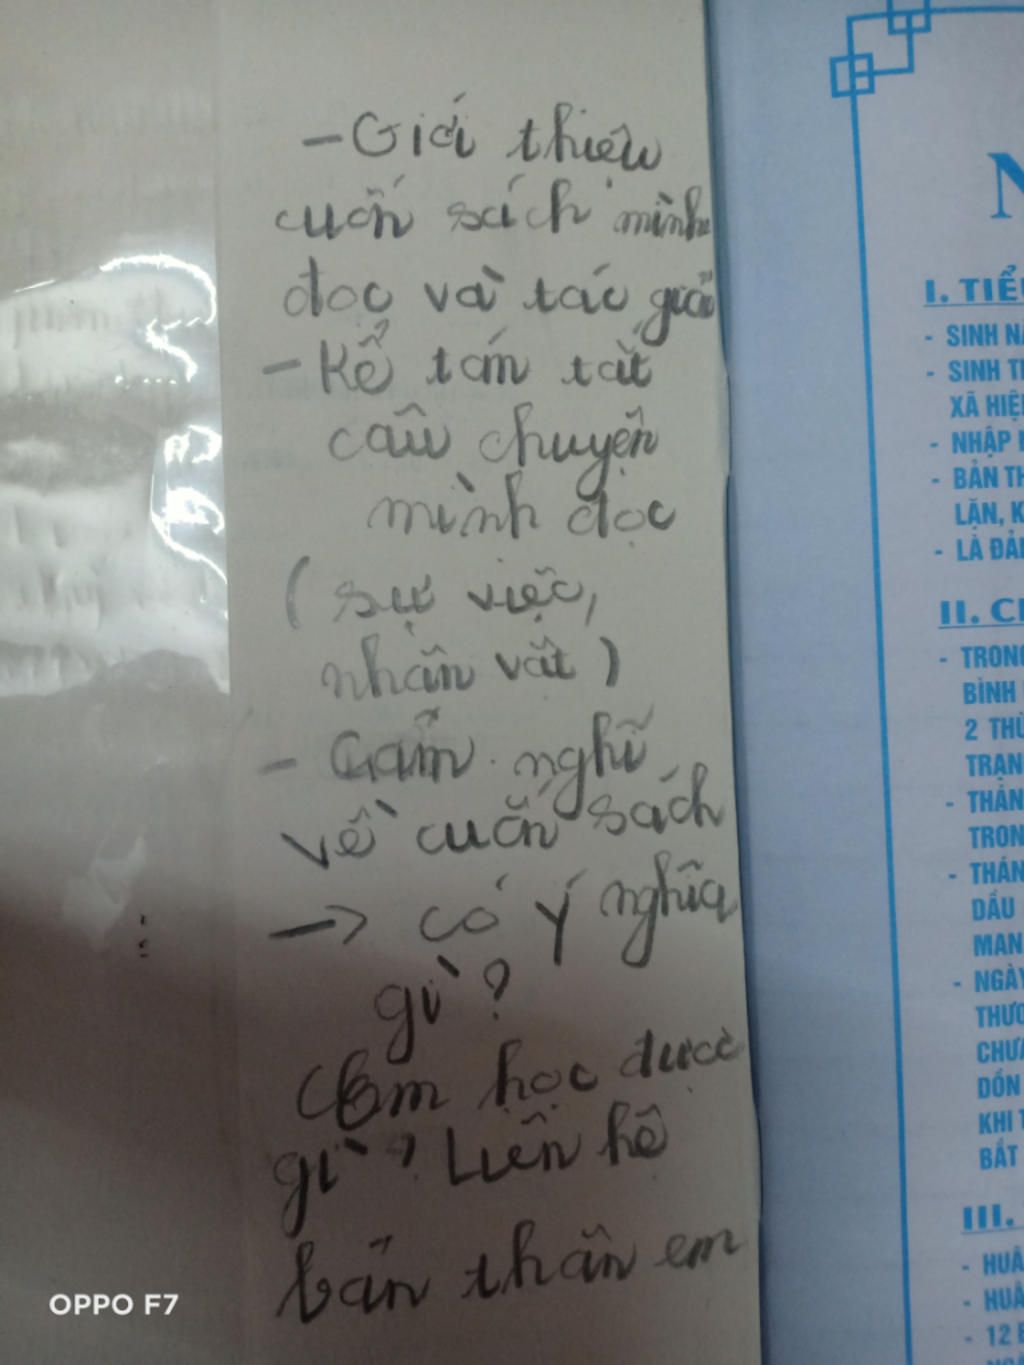 - Giới thiệu
cuốn sách mình
đọc và tác giả
- Kể tóm tắt
câu chuyện
mình đọc
( sự việc,
nhân vật )
- Cảm nghĩ
về cuốn sách
-> có ý nghĩa
gì ?
(Em học được
gì ? Liên hệ
bản thân em
N
I. TIỂ
- SINH NĂ
- SINH T
XÃ HIỆ
- NHẬP
- BẢN TH
LẶN, K
- LÀ ĐẢ
II. C
- TRONG
BÌNH
2 THÙ
TRẠN
- THÁN
TRON
- THÁN
DẦU
MAN
- NGÀY
THƯƠ
CHƯA
DỒN
KHI T
BẮT
III.
- HUÂ
- HUÂ
- 12
OPPO F7